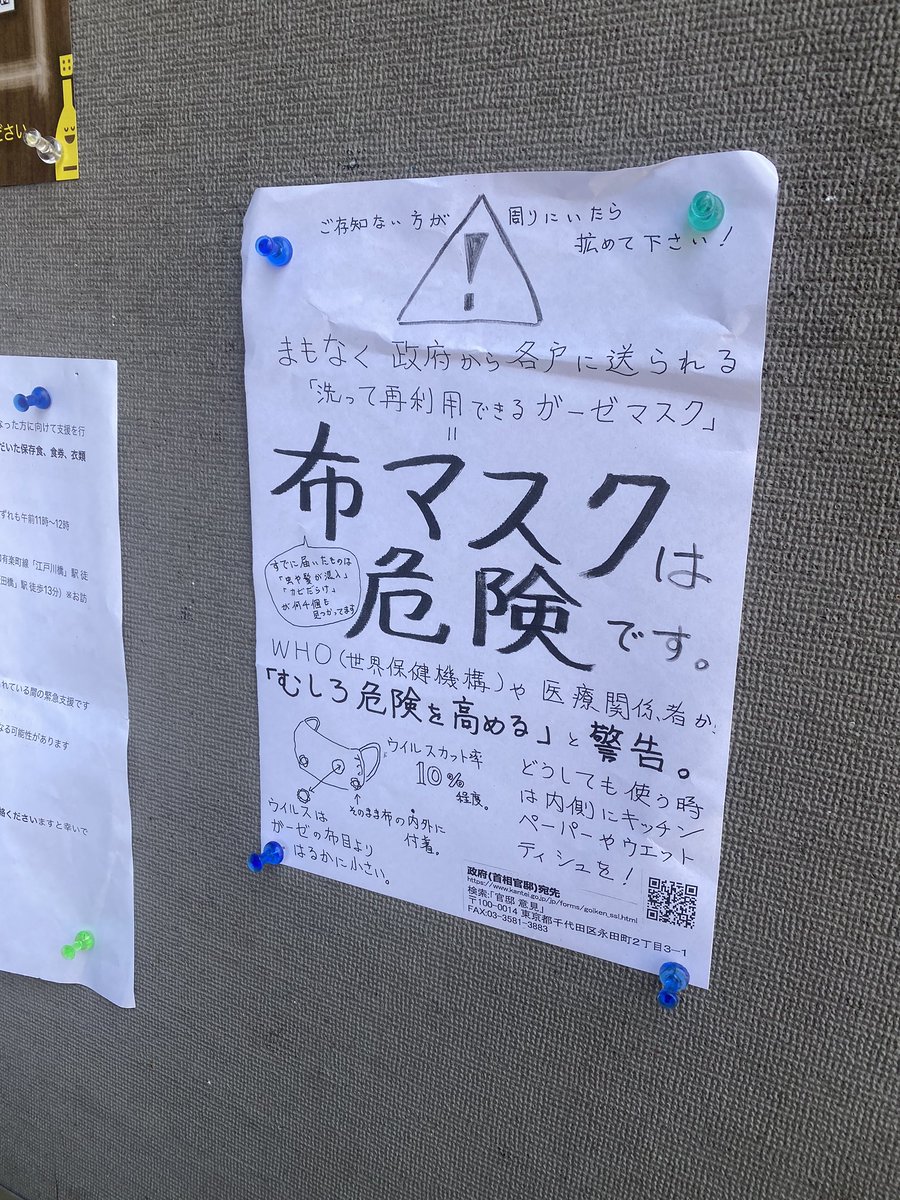 ださい
ご存知ない方が
周りにいたら
拡めて下さい!
!
まもなく政府から各戸に送られる
「洗って再利用できるガーゼマスク」
=
布マスクは
危険です。
すでに届いたものは
「虫や髪が混入」
「カビだらけ」
が何千個も
見つかってます
WHO(世界保健機構)や医療関係者が
「むしろ危険を高める」と警告。
ウイルスカット率
10%
程度。
そのまま布の内外に
付着。
ウイルスは
ガーゼの布目より
はるかに小さい。
どうしても使う時
は内側にキッチン
ペーパーやウエット
ティシュを!
政府(首相官邸)宛先
https://www.kantei.go.jp/jp/forms/goiken_ssl.html
検索:「官邸 意見」
〒100-0014 東京都千代田区永田町2丁目3-1
FAX:03-3581-3883
なった方に向けて支援を行
だいた保存食、食券、衣類
ずれも午前11時〜12時
有楽町線「江戸川橋」駅 徒
田橋」駅 徒歩13分)※お訪
れている間の緊急支援です
なる可能性があります
絡くださいますと幸いで